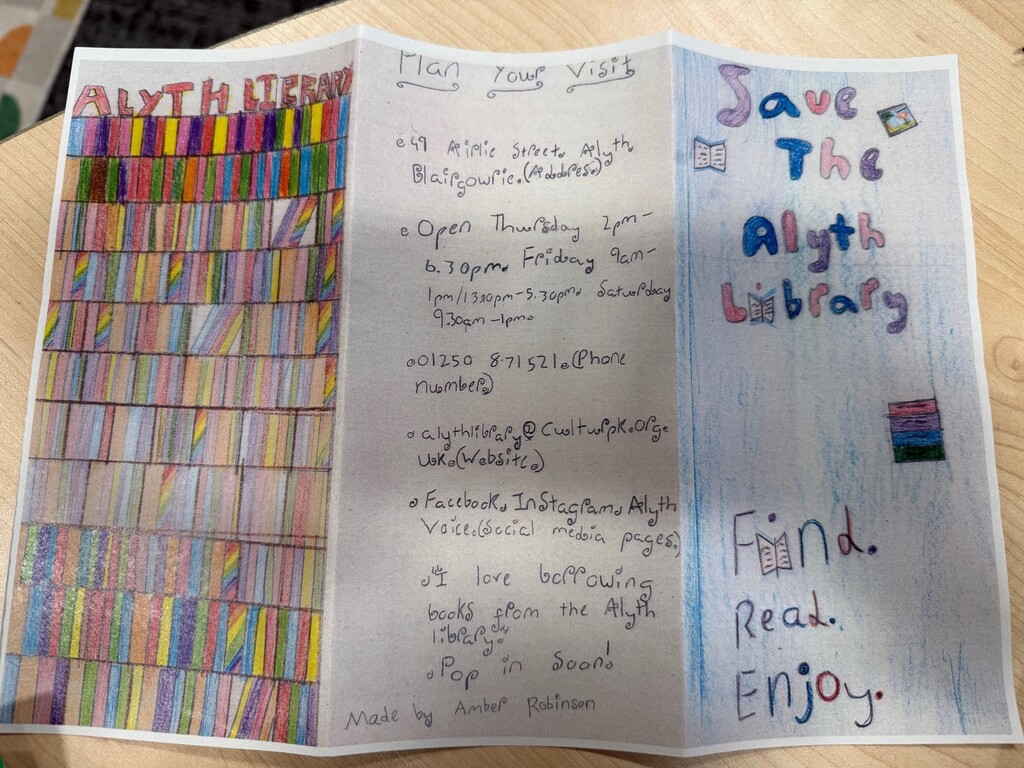 ALYTH LIBRARY
Plan Your Visit
49 Airlie Street, Alyth,
Blairgowrie.(Address.)
Open Thursday 2pm-
6.30pm, Friday 9am-
1pm/1.30pm-5.30pm, Saturday
9.30am-1pm.
01250 871521.(Phone
number.)
alythlibrary@culturpk.org.
uk.(Website.)
Facebook, Instagram, Alyth
Voice.(Social media pages.)
"I love borrowing
books from the Alyth
library."
Pop in Soon!
Made by Amber Robinson
Save
The
Alyth
Library
Find.
Read.
Enjoy.